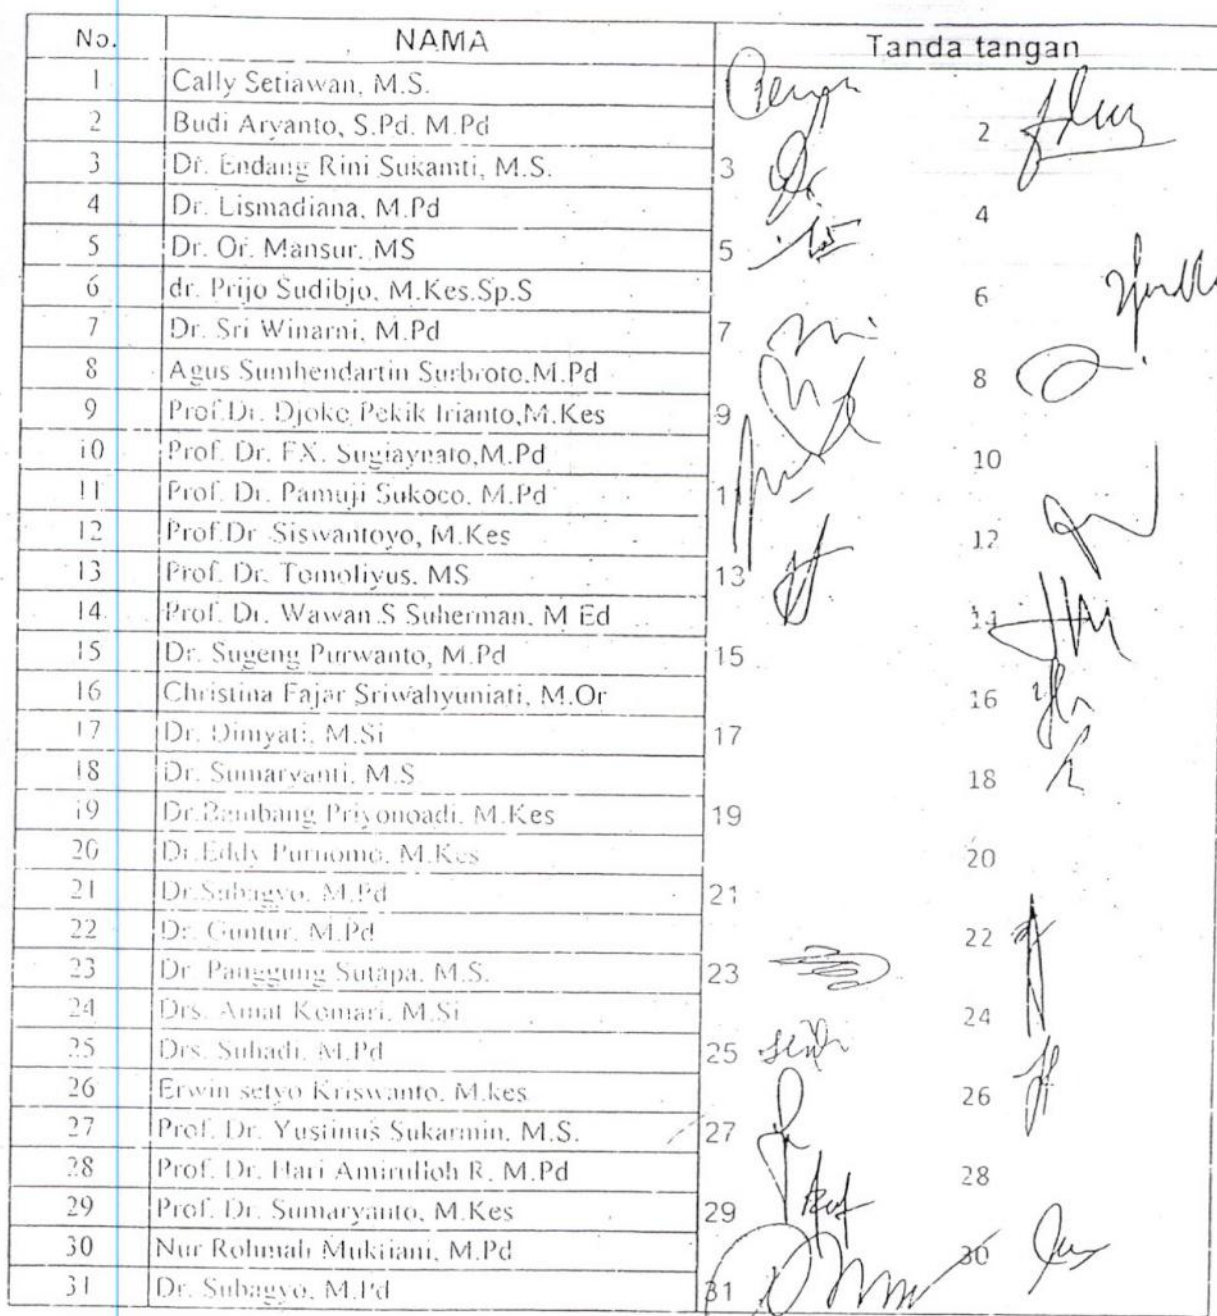 No. NAMA Tanda tangan
1 Cally Setiawan, M.S.
2 Budi Aryanto, S.Pd. M.Pd 2
3 Dr. Endang Rini Sukamti, M.S. 3
4 Dr. Lismadiana, M.Pd 4
5 Dr. Or. Mansur. MS 5
6 dr. Prijo Sudibjo, M.Kes.Sp.S 6
7 Dr. Sri Winarni, M.Pd 7
8 Agus Sumhendartin Surbroto.M.Pd 8
9 Prof.Dr. Djoko Pekik Irianto,M.Kes 9
10 Prof. Dr. FX. Sugiaynato,M.Pd 10
11 Prof. Dr. Pamuji Sukoco. M.Pd 1
12 Prof.Dr Siswantoyo, M.Kes 12
13 Prof. Dr. Tomoliyus. MS 13
14 Prof. Dr. Wawan.S Suherman. M Ed 14
15 Dr. Sugeng Purwanto, M.Pd 15
16 Christina Fajar Sriwahyuniati, M.Or 16
17 Dr. Dimyati, M.Si 17
18 Dr. Sumaryanti. M.S 18
19 Dr.Bambang Priyonoadi. M.Kes 19
20 Dr.Eddy Purnomo, M.Kes 20
21 Dr.Subagyo, M.Pd 21
22 Dr. Guntur. M.Pd 22
23 Dr. Panggung Sutapa. M.S. 23
24 Drs. Amat Komari. M.Si 24
25 Drs. Suhadi. M.Pd 25
26 Erwin setyo Kriswanto. M.kes 26
27 Prof. Dr. Yustinus Sukarmin. M.S. 27
28 Prof. Dr. Hari Amirulloh R. M.Pd 28
29 Prof. Dr. Sumaryanto, M.Kes 29
30 Nur Rohmah Muktiani, M.Pd 30
31 Dr. Subagyo. M.Pd 31